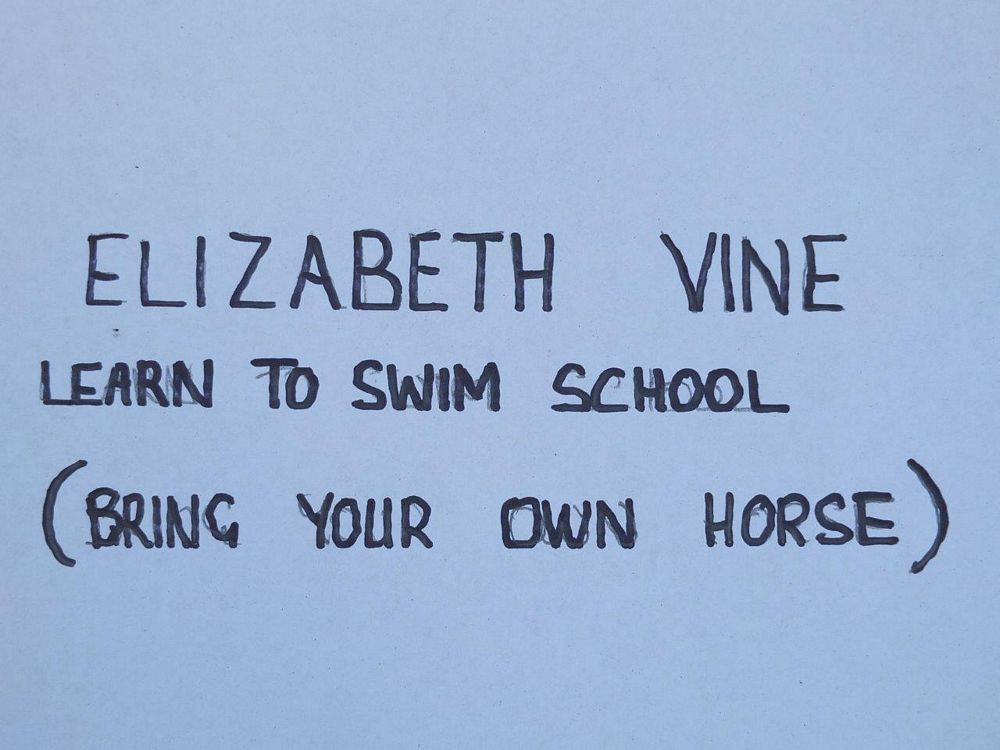 ELIZABETH VINE
LEARN TO SWIM SCHOOL
(BRING YOUR OWN HORSE)